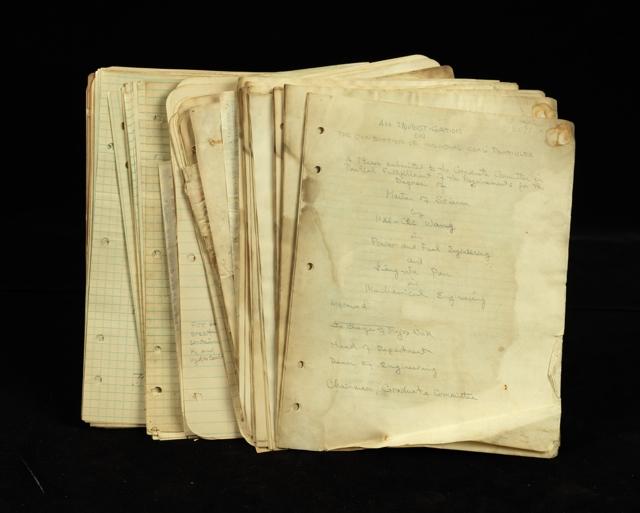 AN INVESTIGATION
ON
THE COMBUSTION OF INDIVIDUAL COAL PARTICLES
A Thesis submitted to the Graduate Committee in
Partial Fulfillment of the Requirements for the
Degree of
Master of Science
by
Wang
in
Power and Fuel Engineering
and
Pan
in
Mechanical Engineering
Approved
In Charge of Major Work
Head of Department
Dean of Engineering
Chairman, Graduate Committee